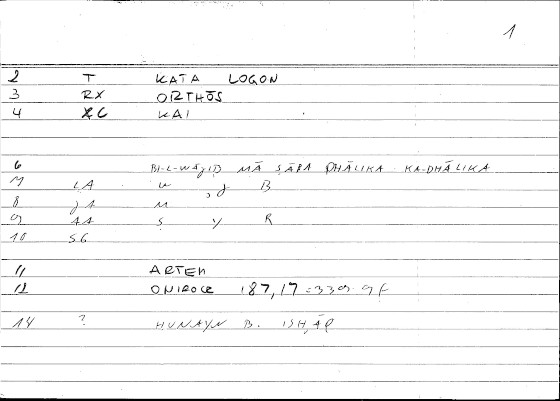 1
2 T KATA LOGON
3 RX ORTHŌS
4 XC KAI
6 BI-L-WĀǧIB MĀ ṢĀRA DHĀLIKA KA-DHĀLIKA
7 LA W ǧ B
8 JA M
9 AA Ṣ Y R
10 SG
11 ARTEM
12 ONIROCR 187,17 = 339. 9 f
14 ? HUNAYN B. ISḤĀQ